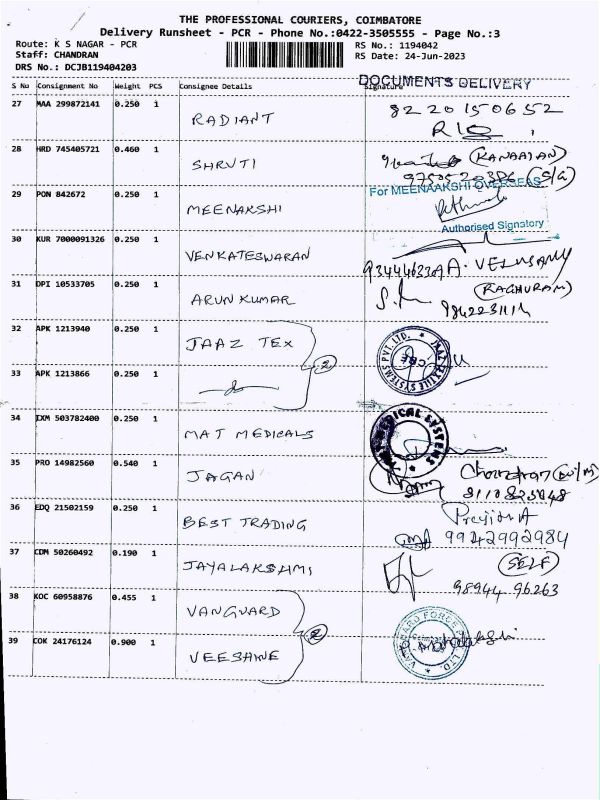 THE PROFESSIONAL COURIERS, COIMBATORE
Delivery Runsheet - PCR - Phone No.:0422-3505555 - Page No.:3
Route: K S NAGAR - PCR
RS No.: 1194042
Staff: CHANDRAN
RS Date: 24-Jun-2023
DRS No.: DCJB119404203
DOCUMENTS DELIVERY
S No Consignment No Weight PCS Consignee Details Signature
27 MAA 299872141 0.250 1 RADIANT 8220150652
28 HRD 745405721 0.460 1 SHRUTI (KANAAIAN)
(S/G)
For MEENAAKSHI OVERSEAS
29 PON 842672 0.250 1 MEENAKSHI
Authorised Signatory
30 KUR 7000091326 0.250 1 VENKATESWARAN
A. VELUSAMY
31 DPI 10533705 0.250 1 ARUN KUMAR (RAGHURAM)
32 APK 1213940 0.250 1 JAAZ TEX
2
33 APK 1213866 0.250 1
34 IXM 503782400 0.250 1 MAT MEDICALS
MEDICAL SYSTEMS
35 PRO 14982560 0.540 1 JAGAN
36 EDQ 21502159 0.250 1 BEST TRADING
9942992984
37 CDM 50260492 0.190 1 JAYALAKSHMI (SELF)
98944 96263
38 KOC 60958876 0.455 1 VANGUARD
2
39 COK 24176124 0.900 1 VEESHINE